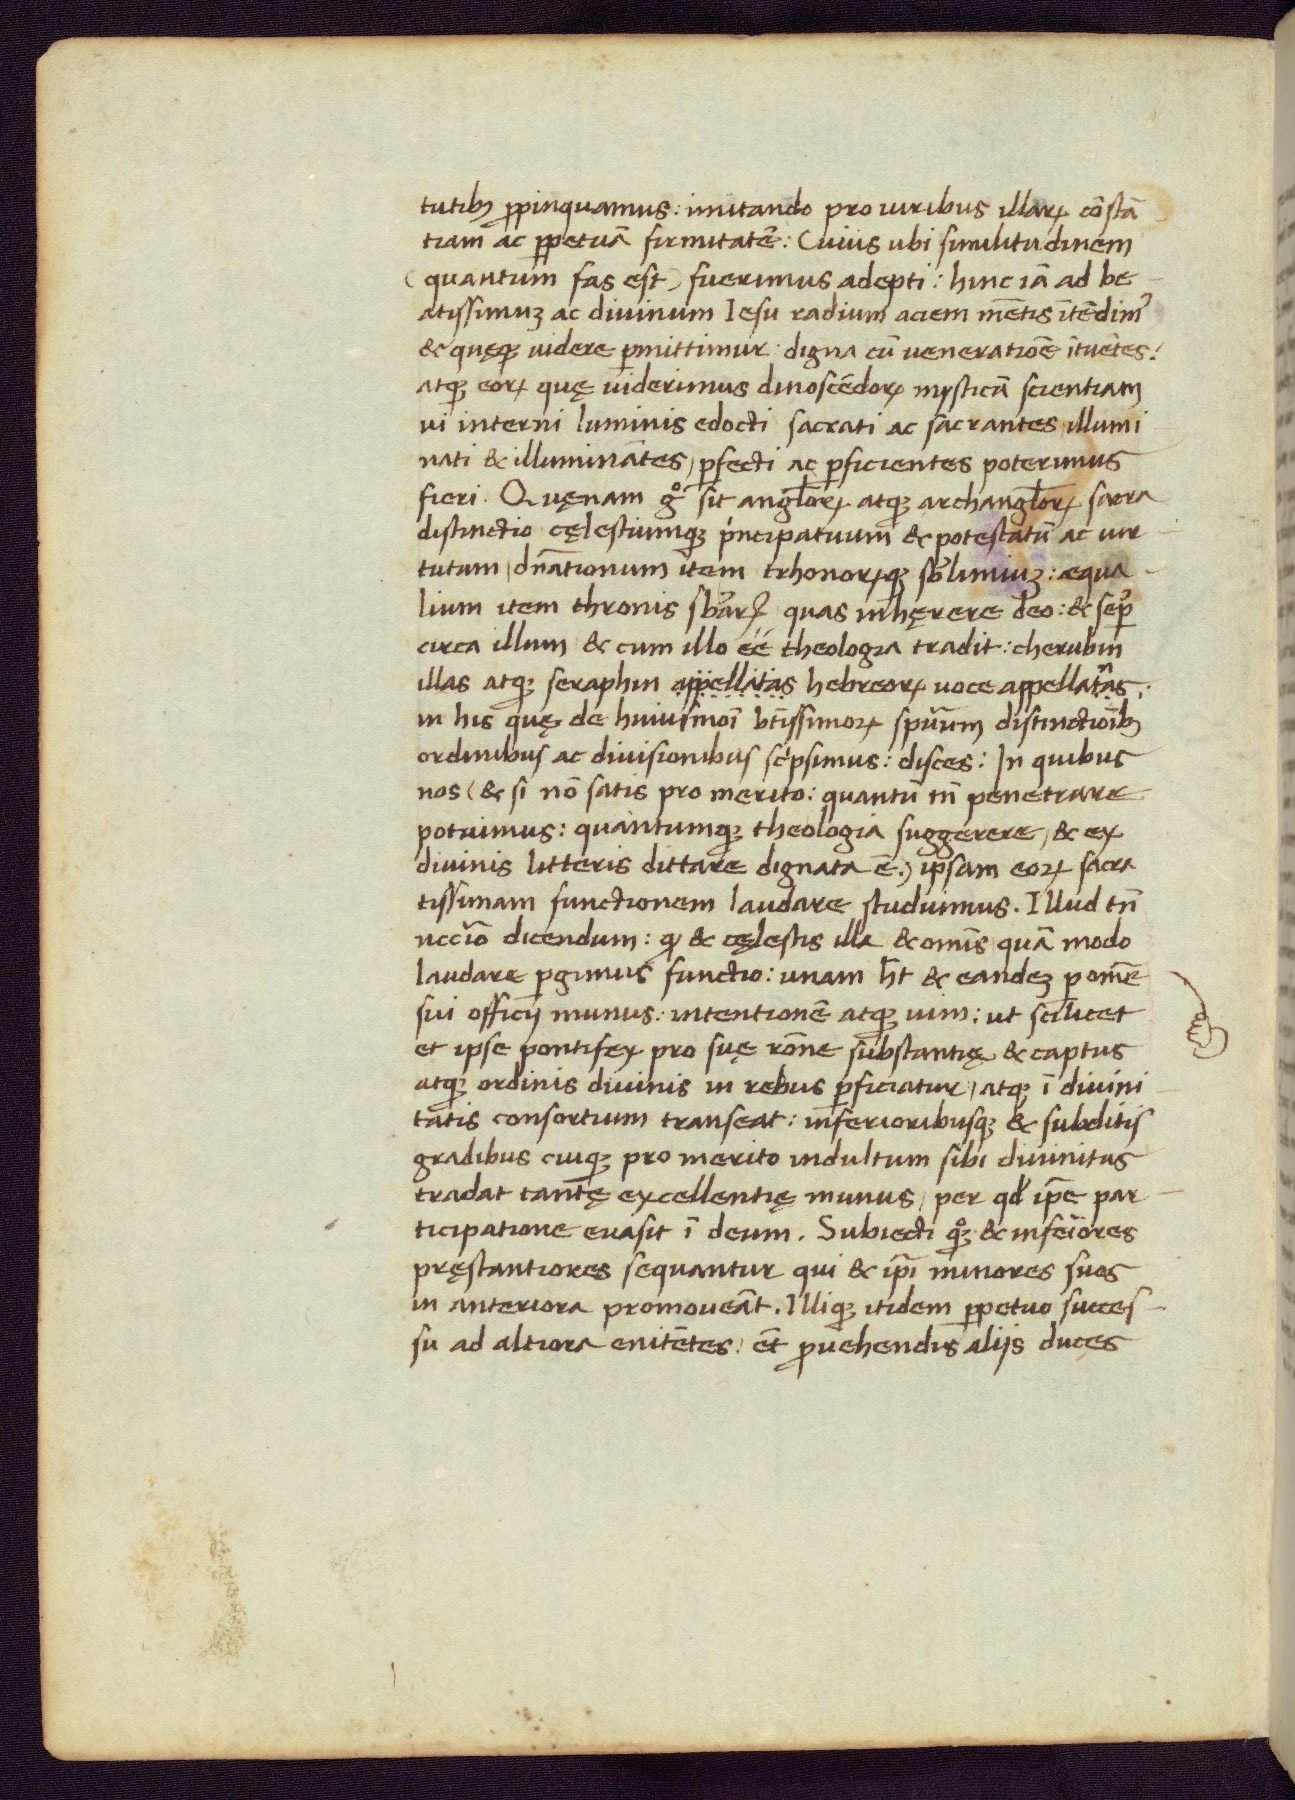 tutibꝫ ꝓpinquamus: imitando pro uiribus illaꝝ cōstā
tiam ac ꝑpetuā firmitatē: Cuius ubi similitudinem
(quantum fas est) fuerimus adepti: hinc iā ad be-
atissimuꝫ ac diuinum Iesu radium aciem mētis ītēdimꝰ
& quęqꝫ uidere ꝑmittimur digna cū ueneratiōe ītuētes:
atqꝫ eoꝝ quę uiderimus dinoscēdoꝝ mysticā scientiam
ui interni luminis edocti sacrati ac sacrantes illumi
nati & illuminātes, ꝑfecti ac ꝑficientes poterimus
fieri. Quęnam gͦ sit angl̄oꝝ atqꝫ archangl̄oꝝ sacra
distinctio cęlestiumqꝫ pⁱncipatuum & potestatū ac uir-
tutum, dn̄ationum item trhonoꝝqꝫ sb̾limiuꝫ: æqua-
lium item thronis sb̾arꝝ quas inhęrere deo: & sēꝑ
circa illum & cum illo eē theologia tradit: cherubin
illas atqꝫ seraphin appellatas hebreoꝝ uoce appellatn̄as:
in his quę de huiusmōi btīssimoꝝ spūum distinctiōibꝫ
ordinibus ac diuisionibus scⁱpsimus: disces: In quibus
nos (& si nō satis pro merito: quantū tn̄ penetrare
potuimus: quantumqꝫ theologia suggerere, & ex
diuinis litteris dittare dignata ē.) ipsam eoꝝ sacra
tissimam functionem laudare studuimus. Illud tn̄
nccīo dicendum: ꝙ & cęlestis illa & omīs quā modo
laudare ꝑgimus functio: unam h̄t & eandeꝫ ꝑ omē
sui officij munus: intentionē atqꝫ uim: ut scilicet
et ipse pontifex pro suę rōne substantię & captus
atqꝫ ordinis diuinis in rebus ꝑficiatur, atqꝫ ī diuini-
tatis consortium transeat: inferioribusqꝫ & subditis
gradibus cuiqꝫ pro merito indultum sibi diuinitus
tradat tantę excellentię munus, per qđ ip̄e par-
ticipatione euasit ī deum. Subiecti qͦqꝫ & inferiores
pręstantiores sequantur qui & ip̄i minores suos
in anteriora promoueāt. Illiqꝫ itidem ꝑpetuo succes-
su ad altiora enitētes: ēt ꝓuehendis alijs duces